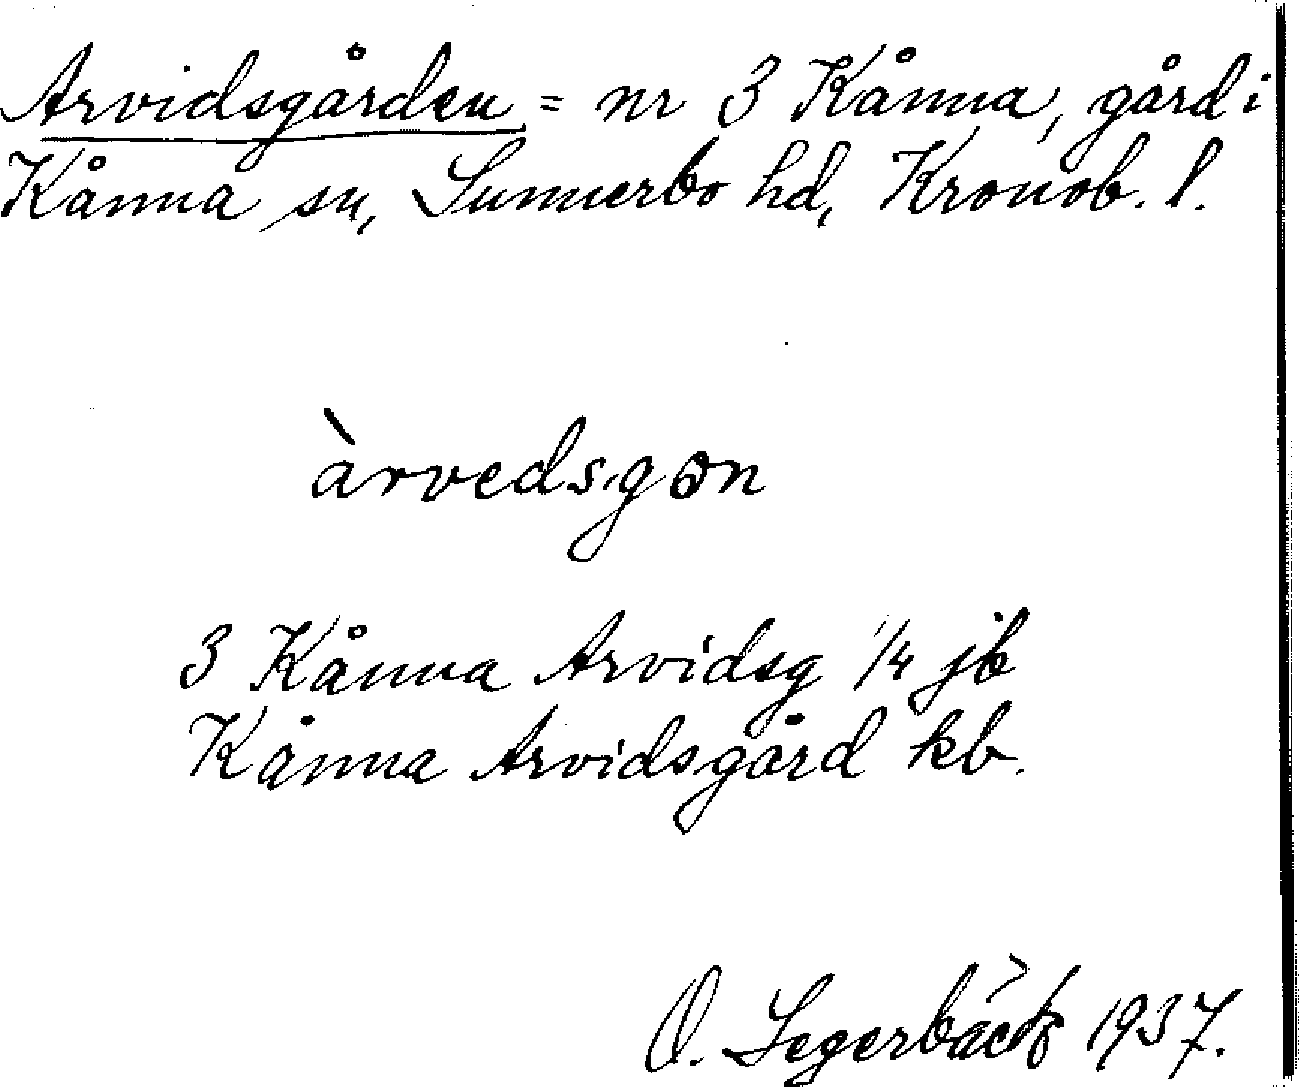 Arvidsgården = nr 3 Kånna, gård i
Kånna sn, Sunnerbo hd, Kronob. l.
àrvedsgɔn
3 Kånna Arvidsg 1/4 jb
Kånna Arvidsgård kb.
O. Segerbäck 1937.